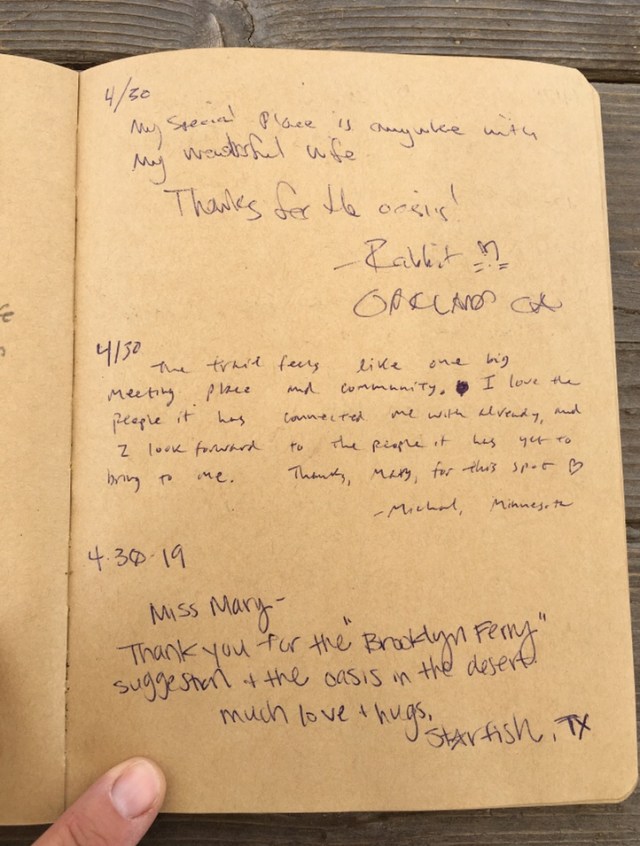 4/30
My special place is anywhere with
my wonderful wife.
Thanks for the oasis!
- Rabbit
OAKLAND CA
4/30
The trail feels like one big
meeting place and community. I love the
people it has connected me with already, and
I look forward to the people it has yet to
bring to me. Thanks, Mary, for this spot ♡
- Michael, Minnesota
4.30.19
Miss Mary-
Thank you for the "Brooklyn Ferry"
suggestion + the oasis in the desert.
much love + hugs,
Starfish, TX